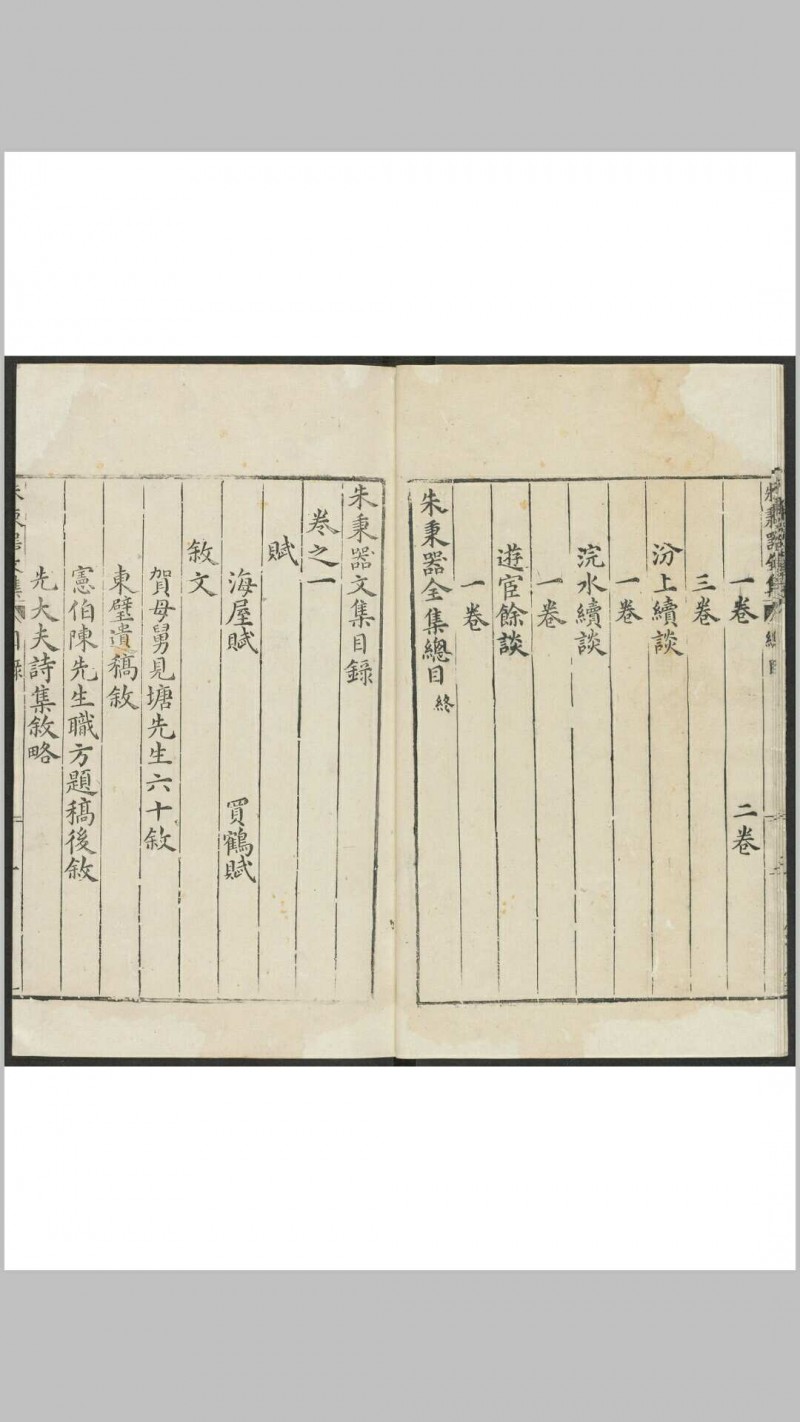 一卷 二卷
三卷
汾上續談
一卷
浣水續談
一卷
遊宦餘談
一卷
朱秉器全集總目 終
朱秉器文集目錄
卷之一
賦
海屋賦 買鶴賦
敘文
賀母舅見塘先生六十敘
東壁遺稿敘
憲伯陳先生職方題稿後敘
先大夫詩集敘略